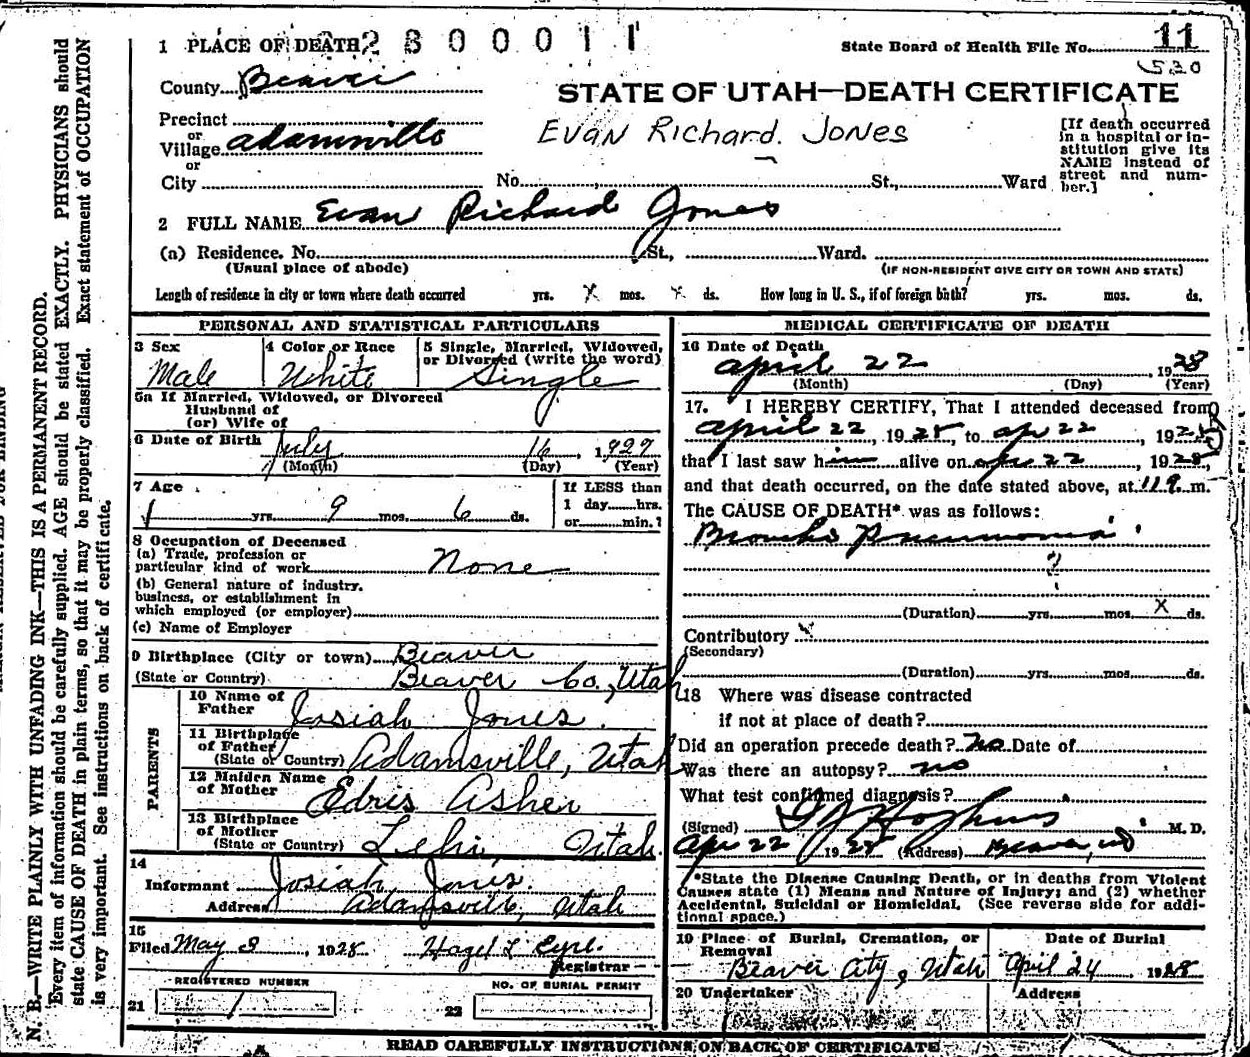 1 PLACE OF DEATH 2 8 0 0 0 1 1
State Board of Health File No. 11
530
County Beaver
STATE OF UTAH—DEATH CERTIFICATE
Precinct
or
Village Adamsville
or
City No. St., Ward
Evan Richard Jones
[If death occurred
in a hospital or in-
stitution give its
NAME instead of
street and num-
ber.]
2 FULL NAME Evan Richard Jones
(a) Residence. No. St., Ward.
(Usual place of abode) (IF NON-RESIDENT GIVE CITY OR TOWN AND STATE)
Length of residence in city or town where death occurred yrs. X mos. X ds. How long in U. S., if of foreign birth? yrs. mos. ds.
PERSONAL AND STATISTICAL PARTICULARS
3 Sex
Male
4 Color or Race
White
5 Single, Married, Widowed,
or Divorced (write the word)
Single
5a If Married, Widowed, or Divorced
Husband of
(or) Wife of
6 Date of Birth July 16, 1927
(Month) (Day) (Year)
7 Age
1 yrs. 9 mos. 6 ds.
If LESS than
1 day hrs.
or min.?
8 Occupation of Deceased
(a) Trade, profession or
particular kind of work None
(b) General nature of industry.
business, or establishment in
which employed (or employer)
(c) Name of Employer
9 Birthplace (City or town) Beaver
(State or Country) Beaver Co., Utah
PARENTS
10 Name of
Father Josiah Jones.
11 Birthplace
of Father
(State or Country) Adamsville, Utah
12 Maiden Name
of Mother Edris Asher
13 Birthplace
of Mother
(State or Country) Lehi, Utah.
14
Informant Josiah Jones.
Address Adamsville, Utah
15
Filed May 3, 1928 Hazel L Eyre.
Registrar
REGISTERED NUMBER
21 1
NO. OF BURIAL PERMIT
22
MEDICAL CERTIFICATE OF DEATH
16 Date of Death
April 22, 1928
(Month) (Day) (Year)
17. I HEREBY CERTIFY, That I attended deceased from
April 22, 1928, to Apr 22, 1928,
that I last saw him alive on Apr 22, 1928,
and that death occurred, on the date stated above, at m.
The CAUSE OF DEATH* was as follows:
Broncho Pneumonia
?
(Duration) yrs. mos. X ds.
Contributory
(Secondary)
(Duration) yrs. mos. ds.
18 Where was disease contracted
if not at place of death?
Did an operation precede death? No Date of
Was there an autopsy? no
What test confirmed diagnosis?
(Signed) M. D.
Apr 22 1928 (Address) Beaver,
*State the Disease Causing Death, or in deaths from Violent
Causes state (1) Means and Nature of Injury; and (2) whether
Accidental, Suicidal or Homicidal. (See reverse side for addi-
tional space.)
19 Place of Burial, Cremation, or
Removal
Beaver City, Utah
Date of Burial
April 24 1928
20 Undertaker
Address
READ CAREFULLY INSTRUCTIONS ON BACK OF CERTIFICATE
N. B.—WRITE PLAINLY WITH UNFADING INK—THIS IS A PERMANENT RECORD.
Every item of information should be carefully supplied. AGE should be stated EXACTLY. PHYSICIANS should
state CAUSE OF DEATH in plain terms, so that it may be properly classified. Exact statement of OCCUPATION
is very important. See instructions on back of certificate.